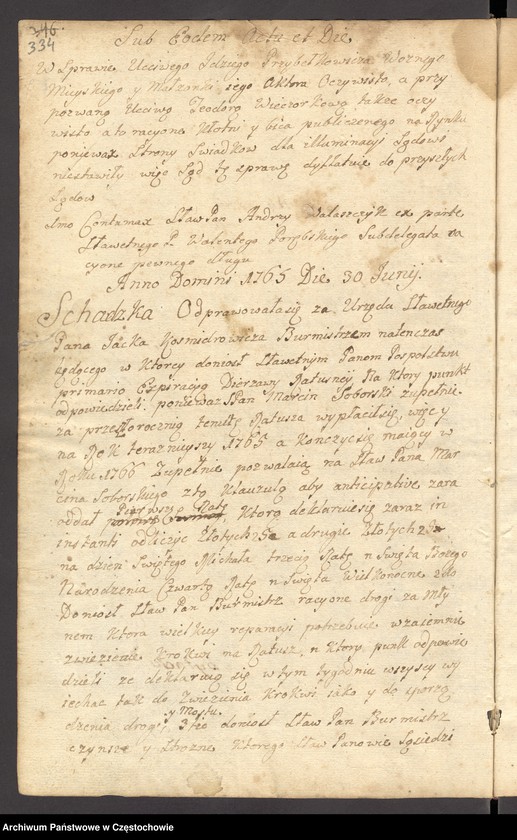 346.
334
Sub Eodem Actu et Die
W Sprawie Ucciwego Idziego Przybełkowicza Woznego
Mieyskiego y Małzonki iego Aktora Oczywisto, a przy
pozwaną Ucciwą Teodorą Wieczorkową takze oczy
wisto a to racyone kłotni y bica publicznego na Rynku
poniewaz Strony Swiadkow dla illuminacyi Sądowi
niestawiły więc Sąd tę sprawę dylatuie do przyszłych
Sądow
Contumax Sław Pan Andrzy Walaszczyk ex parte
Sławetnego P. Walentego Porębskiego Subdelegata ra
cyone pewnego długu
Anno Domini 1765 Die 30 Junij.
Schadzka Odprawowała się za Urzędu Sławetnego
Pana Jacka Kosmidrowicza Burmistrzem natenczas
będącego w ktorey doniosł Sławetnym Panom Pospolstwu
primario Exspiracyą Dierzawy Ratusney Na ktory punkt
odpowiedzieli: poniewaz JPan Marcin Soborski zupełnie
za przeszłoroczną tenutę Ratusza wypłacił się, więc y
na Rok teraznieyszy 1765 a konczyc się maiący w
Roku 1766 Zupełnie pozwalaią na Sław Pana Mar
cina Soborskiego z tą klauzulą aby anticipative zara
oddał Pierwszą Ratę, ktorą deklaruie się zaraz in
instanti odliczyc Złotych 25 a drugie Złotych 25
na dzien Swiętego Michała trzecią Ratę n Swięta Bozego
Narodzenia Czwartą Ratę n Swięta Wielkonocne 2do
Doniosł Sław Pan Burmistrz racyone drogi za Mły
nem ktora wielkiey reparacyi potrzebuie wzaiemnie
zwiezienie krokwi na Ratusz, n ktory punkt odpowie
dzieli ze deklaruią się w tym tygodniu wszyscy wy
iechac tak do Zwiezienia krokwi iako y do sporzą
dzenia drogi, y Mostu. 3tio doniosł Sław Pan Burmistrz
o czynsze y Strozne ktorego Sław Panowie Sąsiedzi
Archiwum Państwowe w Częstochowie